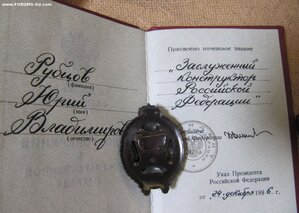 www.FORUMS-su.com
Рубцов
(фамилия)
Юрий
(имя)
Владимиров
(отчество)
Присвоено почетное звание
"Заслуженный
конструктор
Российской
Федерации"
Указ Президента
Российской Федерации
от „24" декабря 1996 г.